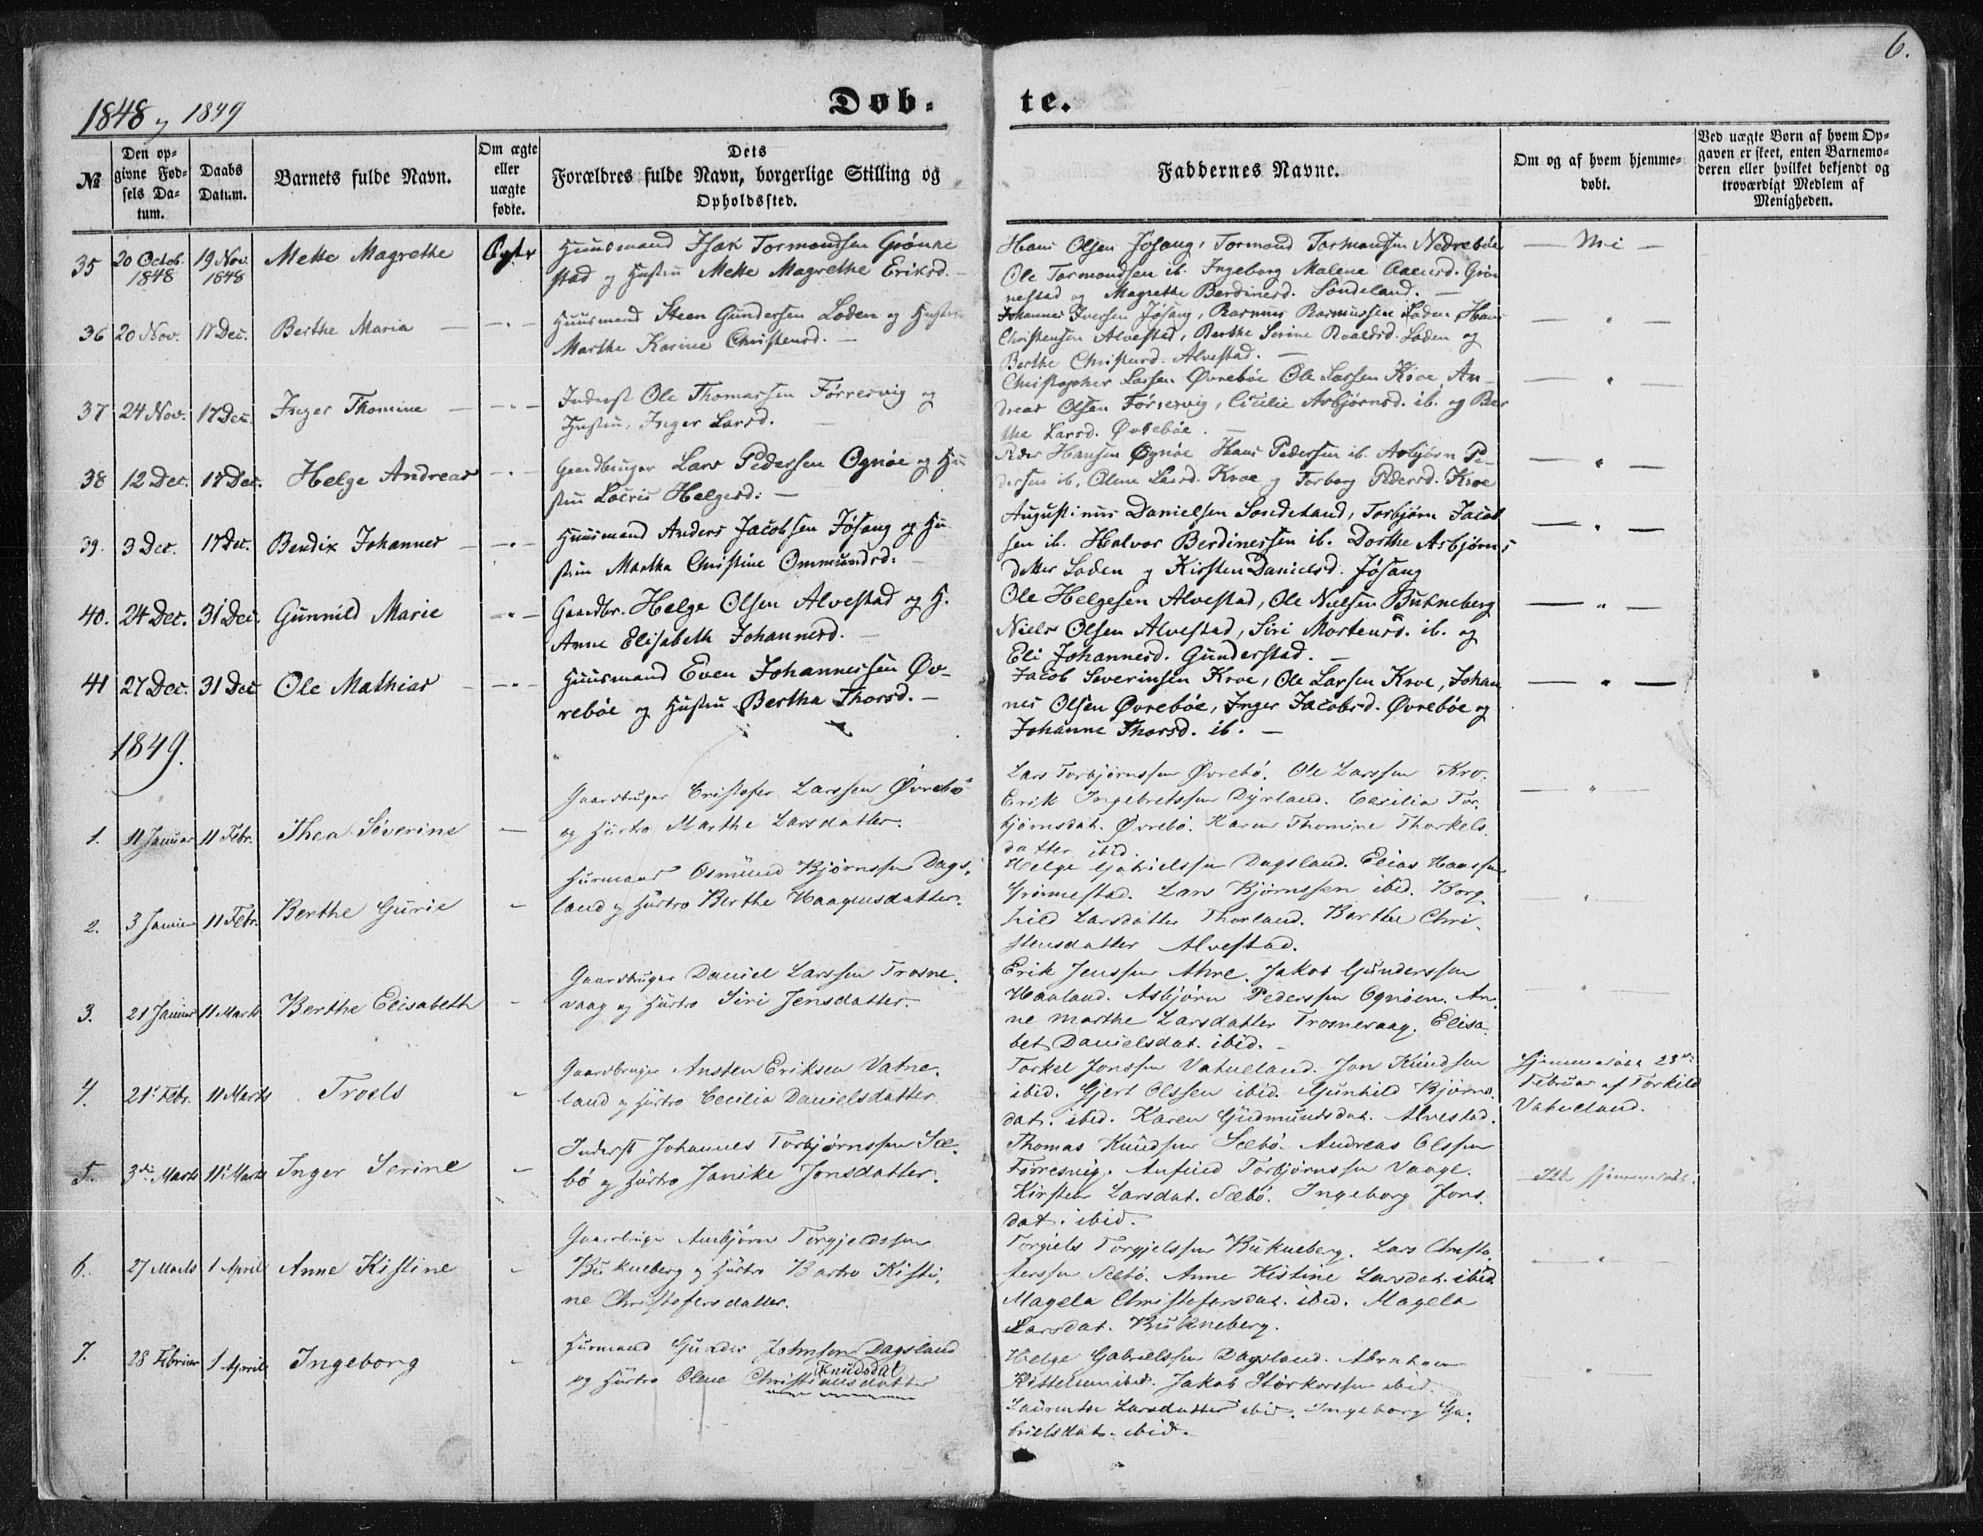 6.
1848 og 1849
Døb-
te.
№
Den op-
givne Fød-
sels Da-
tum.
Daabs
Datum.
Barnets fulde Navn.
Om ægte
eller
uægte
fødte.
Dets
Forældres fulde Navn, borgerlige Stilling og
Opholdssted.
Faddernes Navne.
Om og af hvem hjemme-
døbt.
Ved uægte Børn af hvem Op-
gaven er skeet, enten Barnemo-
deren eller hvilket bekjendt og
troværdigt Medlem af
Menigheden.
35 20 Octob. 1848 19 Nov. 1848 Mette Magrethe Ægte
Huusmand Isak Tormondsen Grønne
stad og Hustru Mette Magrethe Eriksd. —
Hans Olsen Jøsang, Tormond Tormondsen Nedrebøe
Ole Tormondsen ib. Ingeborg Malene Aanensd. Grön
nestad og Magrethe Berdinesd. Söndeland. —
— Nei —
36 20 Nov. 17 Dec. Berthe Maria — — " —
Huusmand Steen Gundersen Loden og Hustru
Marthe Karine Christensd. —
Johannes Iversen Jøsang, Rasmus Rasmussen Loden, Hans
Christensen Alvestad, Berthe Serine Roaldsd. Loden og
Berthe Christensd. Alvestad. —
— " —
37 24 Nov. 17 Dec. Inger Thomine — — " —
Inderst Ole Thomassen Førresvig og
Hustru, Inger Larsd. —
Christopher Larsen Øvrebøe Ole Larsen Kroe, An-
dreas Olsen Førresvig, Cicilie Asbjørnsd. ib. og Ber
the Larsd. Øvrebøe. —
— " —
38 12 Dec. 17 Dec. Helge Andreas — " —
Gaardbruger Lars Pedersen Ognøe og Hu
stru Helgesd. —
Peder Hansen Øgnøe Hans Pedersen ib. Asbjørn Pe-
dersen ib. Olene Larsd. Kroe og Torborg Pedersd. Kroe
— " —
39. 3 Dec. 17 Dec. Bendix Johannes — — " —
Huusmand Anders Jacobsen Jøsang og Hu
stru Martha Christine Ommundsd. —
Augustinus Danielsen Sondeland, Torbjørn Jacob
sen ib. Halvor Berdinessen ib. Dorthe Asbjørns
datter Loden og Kirsten Danielsd. Jøsang
— " —
40. 24 Dec. 31 Dec. Gunnild Marie — " —
Gaardbr. Helge Olsen Alvestad og H.
Anne Elisabeth Johannesd. —
Ole Helgesen Alvestad, Ole Nielsen Bukneberg
Niels Olsen Alvestad, Siri Mortensd. ib. og
Eli Johannesd. Gunderstad. —
— " —
41 27 Dec. 31 Dec Ole Mathias — — " —
Huusmand Even Johannessen Øv-
rebøe og Hustru Bertha Thorsd. —
Jacob Severinsen Kroe, Ole Larsen Kroe, Johan
nes Olsen Øvrebøe, Inger Jacobsd. Øvrebøe og
Johanne Thorsd. ib. —
— " —
1849.
1. 11 Januar 11 Febr. Thea Severine —
Gaardbruger Cristofer Larssen Øvrebö
og Hustro Marthe Larsdatter.
Lars Torbjørnssen Øvrebö. Ole Larssen Kro.
Erik Ingebretssen Dyrland. Cecilia Tor.
bjørnsdat. Øvrebö. Karen Thomine Thorkels.
datter ibid.
— " —
2. 3 Januar 11 Febr. Berthe Gurie —
Husmand Osmund Bjørnssen Dags.
land og Hustro Berthe Haagensdatter.
Helge Gabrielssen Dagsland. Elias Hanssen
Grönnestad. Lars Bjørnssen ibid. Borg.
hild Larsdatter Thorland. Berthe Chri.
stensdatter Alvestad.
— " —
3. 21 Januar 11 Marts Berthe Elisabeth —
Gaardbruger Daniel Larssen Trosne.
vaag og Hustro Siri Jensdatter.
Erik Jenssen Ahre. Jakob Gunderssen
Haaland. Asbjørn Pederssen Ognøen. An.
ne Marthe Larsdatter Trosnevaag. Elisa.
bet Danielsdat. ibid. —
— " —
4. 21 Febr. 11 Marts Troels —
Gaardbruger Ansten Eriksen Vatne.
land og Hustro Cecilia Danielsdatter
Torkel Jonssen Vatneland. Jon Knudsen
ibid. Gjert Olssen ibid. Gunhild Bjørns.
dat. ibid. Karen Gudmundsdat. Alvestad.
Hjemmedøbt 23de
Februar af Torkild
Vatneland.
5. 3die Marts 11 Marts Inger Serine —
Inderst Johannes Torbjørnssen Sæ.
bö og Hustro Janike Jonsdatter.
Thomas Knudsen Sæbö. Andreas Olssen
Førresvig. Anfind Torbjørnssen Vaage.
Kirsten Larsdat. Sæbö. Ingeborg Jons.
dat. ibid.
— Ikke hjemmedøbt.
6. 27 Marts 1 April Anne Kistine —
Gaardbruger Ambjörn Torgjeldssen
Bukneberg og Hustro Barbro Kisti.
ne Christofersdatter.
Torgiels Torgjelssen Bukneberg. Lars Christo.
ferssen Sæbö. Anne Kistine Larsdat. ibid
Magela Christofersdat. ibid. Magela
Larsdat. Bukneberg.
— " —
7. 28 Februar 1 April Ingeborg —
Husmand Gunder Johnsen Dagsland
Knudsdat
og Hustro Olene Christiansdatter
Helge Gabrielssen Dagsland. Abraham
Kittelsen ibid. Jakob Storkorssen ibid.
Laurentse Larsdatter ibid. Ingeborg Ga.
brielsdat. ibid.
— " —